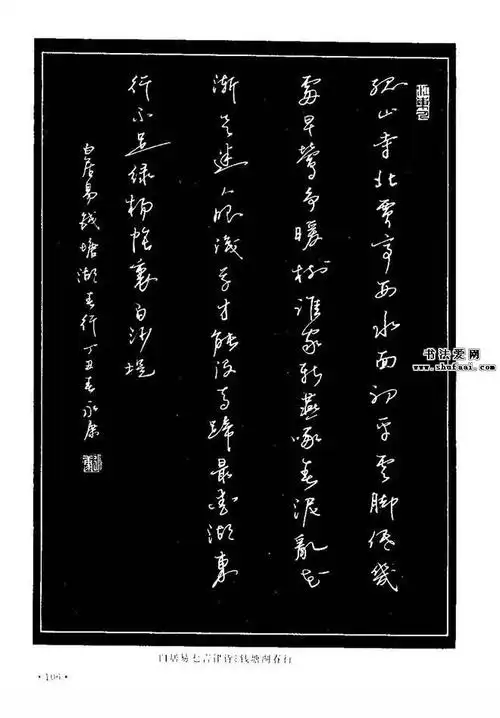 孤山寺北賈亭西水面初平雲脚低幾
處早鶯争暖树誰家新燕啄春泥亂花
漸欲迷人眼淺草才能没马蹄最愛湖東
行不足绿楊陰裏白沙堤
白居易钱塘湖春行丁丑春永康
书法爱网
www.shufaai.com
白居易七言律诗:钱塘湖春行
·106·